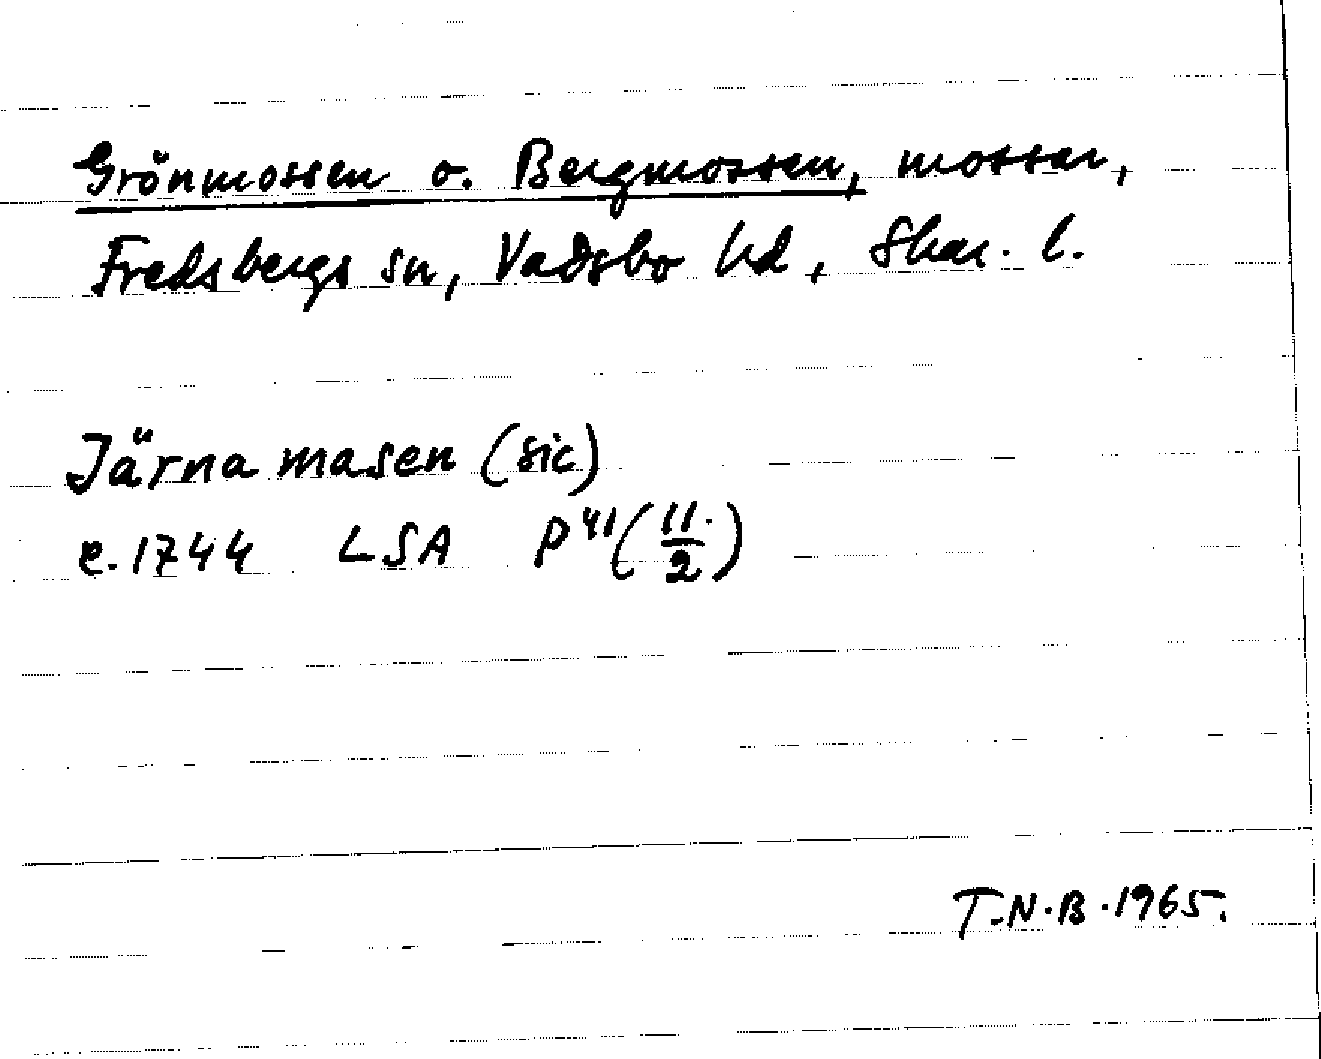 Grönmossen o. Bergmossen, mossar,
Fredsbergs sn, Vadsbo hd, Skar. l.
Järna masen (sic)
e. 1744 LSA P41 (11/2)
T.N.B. 1965.